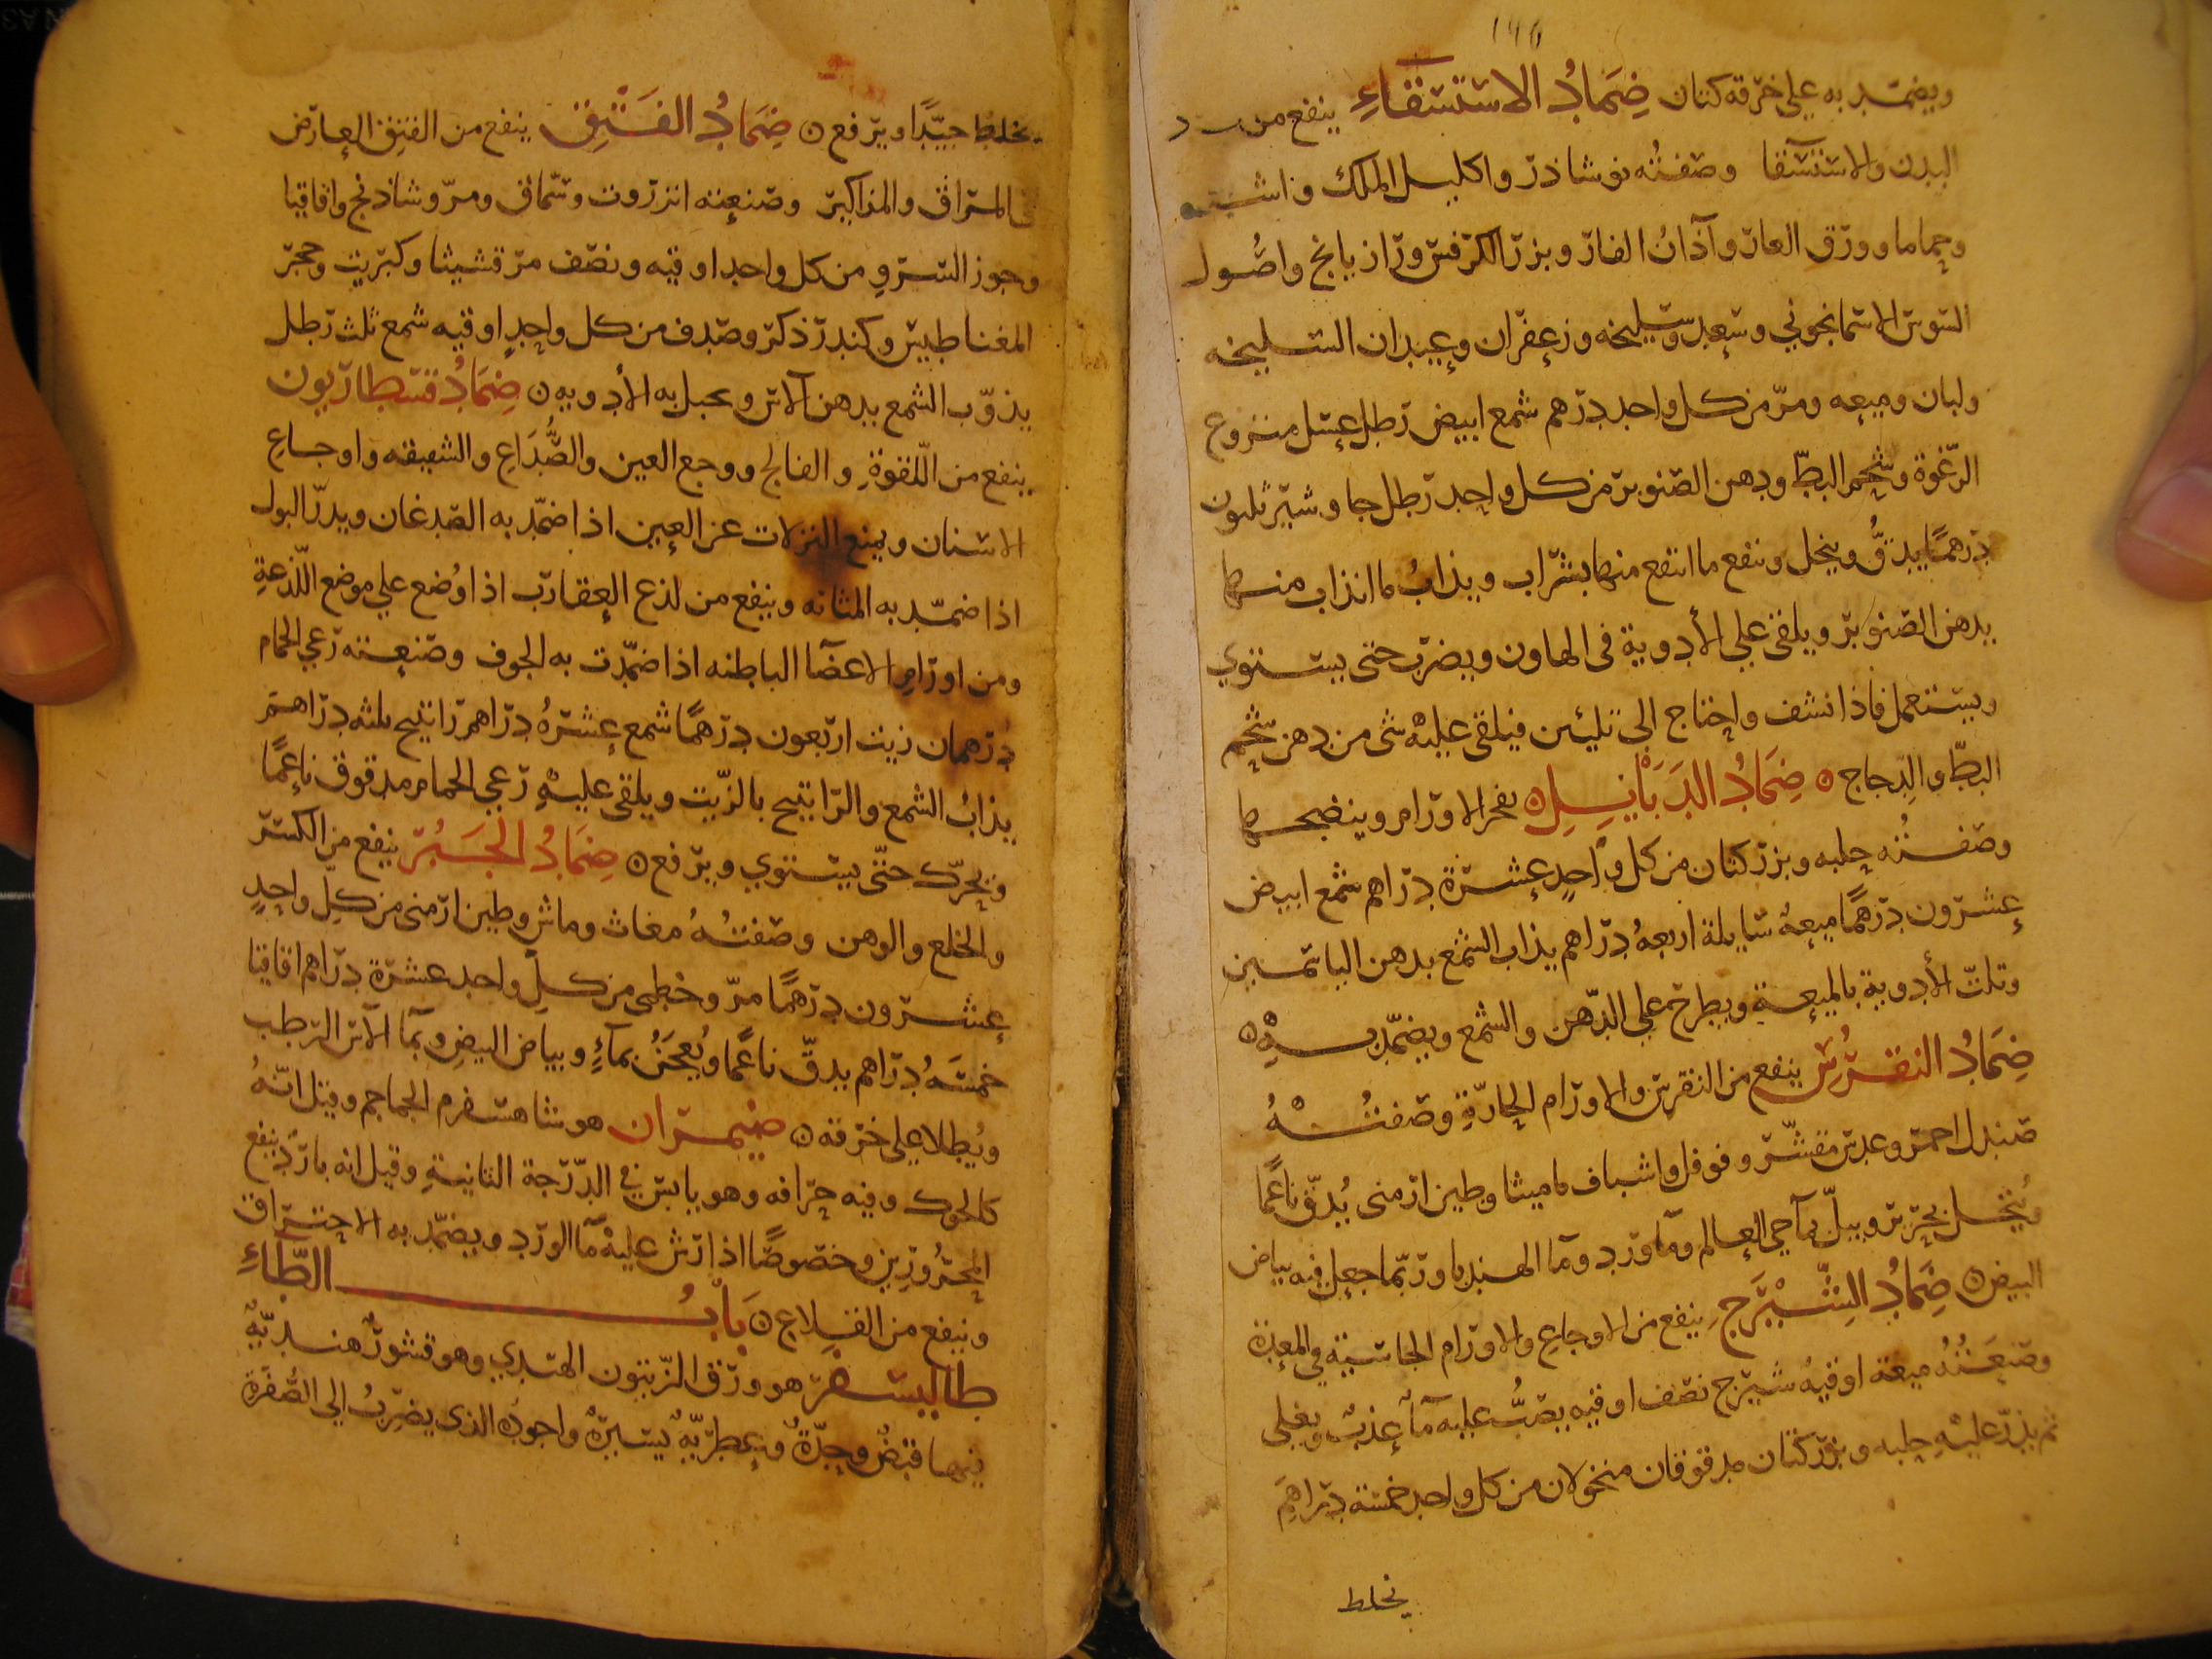 ويضمد به علي خرقه كتان ضَمادُ الاستسقاءِ ينفع من
البدن والاستسقا وصفتُه نوشاذر واكليل الملك
وحماما وورق الغار وآذان الفار وبزر الكرفس ورازيانج واصُول
السوسن الاسمانجوني وسعد وسليخه وزعفران وعيدان السليخه
ولبان وميعه ومرّ من كل واحد درهم شمع ابيض رطل عسل منزوع
الرّغوة وشحم البطّ ودهن الصنوبر من كل واحد رطل جاوشير ثلثون
درهمًا يدقُّ وينخل وينقع ما انتقع منها بشراب ويذابُ ما انذاب منها
بدهن الصنوبر ويلقى علي الأدوية فى الهاون ويضرب حتى يستوي
ويستعمل فاذا نشف واحتاج الى تليين فيلقى عليهْ شى من دهن شحم
البطّ والدجاج ضمَادُ الدَبَابْيسِلِ يفجر الاورام وينضجها
وصفتُه حلبه وبزر كتان من كل واحدٍ عشرة دراهم شمع ابيض
عشرون درهمًا ميعهُ سايلة اربعهُ دراهم يذاب الشمع بدهن الياسمين
وتلتّ الأدوية بالميعة ويطرح علي الدّهن والشمع ويضمّد بهْ
ضِمَادُ النقرُسِ ينفع من النقرس والاورام الحارّةِ وصفتُهُ
صندل احمر وعدس مقشّر وفوفل واشياف ماميثا وطين ارمنى يُدقّ ناعًما
ويُنخل بحرير ويبلّ بمآ حي العالم ومآ ورد ومآ الهندبا وربّما جعل فيه بياض
البيض ضمَادُ الشِّيْرَجِ ينفع من الاوجاع والاورام الجاسية في المعدة
وصنعَتُهُ ميعة اوقيهُ شيرج نصف اوقيه يصبُّ عليه مآ عذب ويغلى
ثم يذرّ عليهْ حلبه وبزر كتان مدقوقان منخولان من كل واحد خمسة دراهم
يخلط
يخلط جيّدًا ويرفع ضمَادُ الفَتْقِ ينفع من الفتق العارض
فى المراق والمذاكير وصنعته انزروت وسماق ومرّ وشاذنج واقاقيا
وجوز السرو من كل واحد اوقيه ونصف مرقشيثا وكبريت وحجر
المغناطيس وكندر ذكر وصدف من كل واحدٍ اوقيه شمع ثلث رطل
يذوّب الشمع بدهن الآس وعبل به الأدويه ضِمَادُ قسطاريون
ينفع من اللّقوةِ والفالج ووجع العين والصُّدَاعِ والشقيقه واوجاع
الاسنان ويمنع النزلات عن العين اذا ضمّد به الصدغان ويدرّ البول
اذا ضمّد به المثانه وينفع من لذع العقارب اذا وُضع علي موضع اللّذعةِ
ومن اورامِ الاعضآ الباطنه اذا ضمّدت به الجوف وصنعته رعي الحمام
درهمان زيت اربعون درهمًا شمع عشرةُ دراهم راتينج ثلثه دراهم
يذابُ الشمع والراتينج بالزّيت ويلقى عليهْ رعي الحمام مدقوق ناعمًا
ويحرّك حتّى يستوي ويرفع ضمَادُ الجَبْرِ ينفع من الكسر
والخلع والوهن وصفتُهُ مغاث وماش وطين ارمنى من كلِّ واحدٍ
عشرون درهمًا مرّ وخطمى من كلِّ واحد عشرة دراهم اقاقيا
خمسَهُ دراهم يدقّ ناعًما ويُعجَنُ بمآءٍ وبياض البيض وبمآ الآس الرطب
ويُطلا علي خرقه ضيمران هو شاهسفرم الجماجم وقيل انّهُ
كالحوك وفيه حرافه وهو يابس في الدّرجة الثانيةِ وقيل انه باردٌ ينفع
المحرُورين وخصوصًا اذا رش عليهْ مآ الورد ويضمّد به الاحتراق
وينفع من القلاع بَابُ الطّاءِ
طاليسفر هو ورق الزّيتون الهندي وهو قشورٌ هنديّهٌ
فيها قبضٌ وحدّةٌ وعطريّهٌ يسيرةٌ واجودُه الذى يضربُ الى الصُّفرة